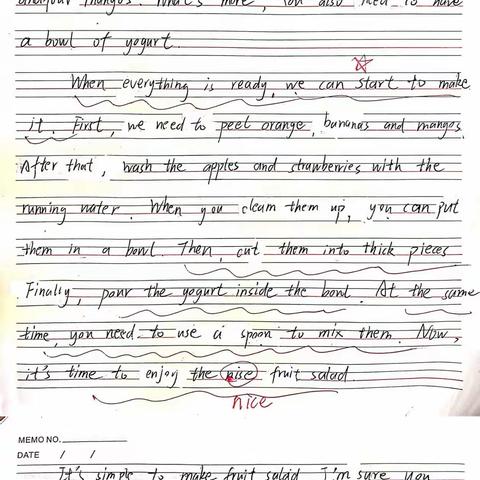 and four mangos. What's more, you also need to have
a bowl of yogurt.
When everything is ready, we can start to make
it. First, we need to peel orange, bananas and mangos.
After that, wash the apples and strawberries with the
running water. When you cleam them up, you can put
them in a bowl. Then, cut them into thick pieces
Finally, pour the yogurt inside the bowl. At the same
time, you need to use a spoon to mix them. Now,
it's time to enjoy the nise fruit salad.
nice
MEMO NO.
DATE / /
It's simple to make fruit salad. I'm sure you